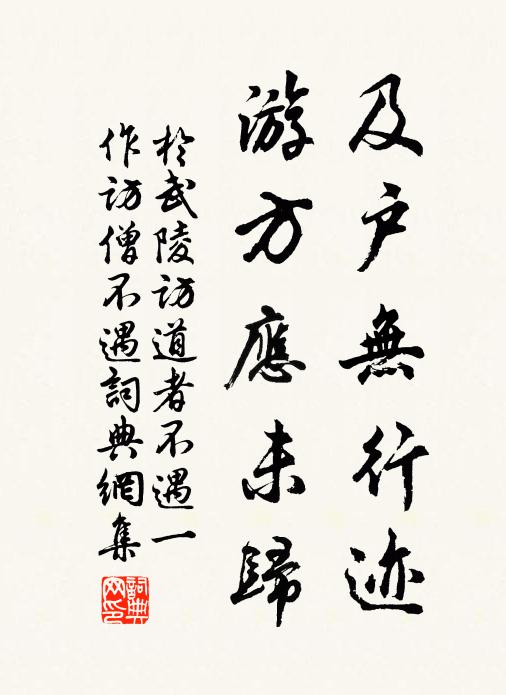 及户無行迹
游方應未歸
於武陵訪道者不遇一
作訪僧不遇詞典網集
詞典網印